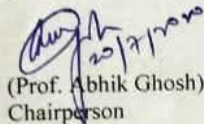 20/7/2020
(Prof. Abhik Ghosh)
Chairperson